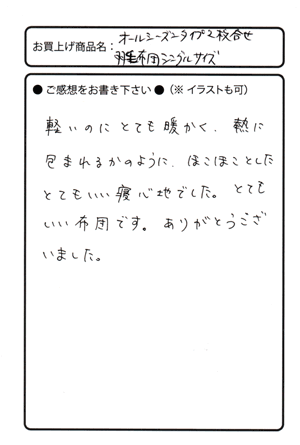 お買上げ商品名： オールシーズンタイプ2枚合せ
羽毛布団シングルサイズ
●ご感想をお書き下さい●（※イラストも可）
軽いのにとても暖かく、熱に
包まれるかのように、ほこほことした
とてもいい寝心地でした。とても
いい布団です。ありがとうござ
いました。